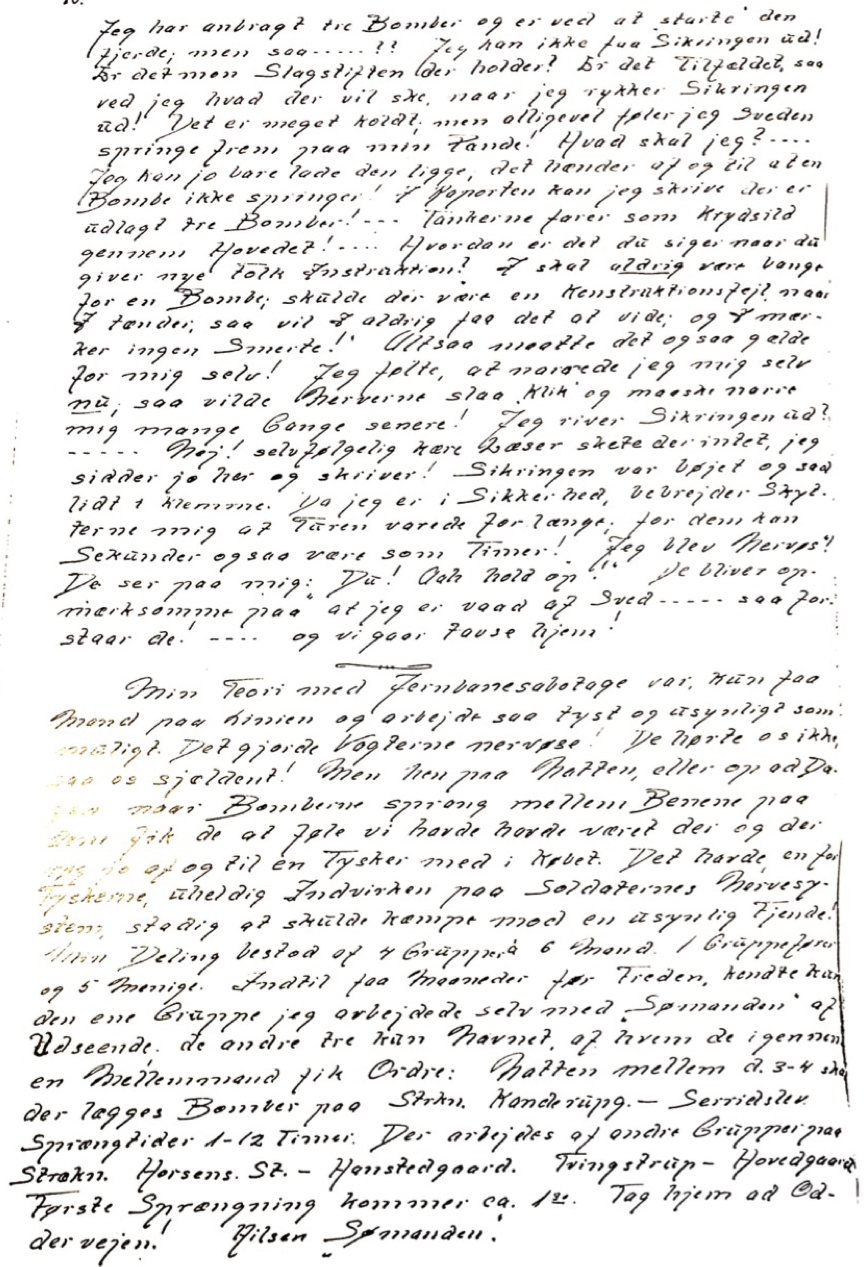 Jeg har anbragt tre Bomber og er ved at "starte" den
fjerde; men saa.....!? Jeg kan ikke faa Sikringen ud!
Er det mon Slagstiften der holder? Er det Tilfældet, saa
ved jeg hvad der vil ske, naar jeg rykker Sikringen
ud! Det er meget koldt; men alligevel føler jeg Sveden
springe frem paa min Pande! Hvad skal jeg?....
Jeg kan jo bare lade den ligge, det hænder af og til at en
Bombe ikke springer! I Raporten kan jeg skrive der er
udlagt tre Bomber!--- Tankerne farer som Krydsild
gennem Hovedet!.... Hvordan er det du siger naar du
giver nye Folk Instruktion? I skal aldrig være bange
for en Bombe; skulde der være en Konstruktionsfejl naar
I tænder, saa vil I aldrig faa det at vide; og I mær-
ker ingen Smerte!" Altsaa maatte det ogsaa gælde
for mig selv! Jeg følte, at narrede jeg mig selv
nu, saa vilde Nerverne slaa "Klik" og maaske narre
mig mange Gange senere! Jeg river Sikringen ud?
----- Nej! selvfølgelig kære Læser skete der intet, jeg
sidder jo her og skriver! Sikringen var bøjet og sad
lidt i Klemme. Da jeg er i Sikkerhed, bebrejder Skyt-
terne mig at Turen varede for længe; for dem kan
Sekunder ogsaa være som Timer! "Jeg blev Nervøs"!
De ser paa mig: Du! Aah hold op"!" De bliver op-
mærksomme paa at jeg er vaad af Sved ----- saa for-
staar de! ---- og vi gaar tavse hjem!
Min Teori med Jernbanesabotage var, kun faa
Mand paa Linien og arbejde saa tyst og usynligt som
muligt. Det gjorde Vogterne nervøse! De hørte os ikke,
saa os sjældent! Men hen paa Natten, eller op ad Da-
gen naar Bomberne sprang mellem Benene paa
dem fik de at føle vi havde havde været der og der
røg jo af og til en Tysker med i Købet. Det havde, en for
Tyskerne, uheldig Indvirken paa Soldaternes Nervesy-
stem, stadig at skulde kæmpe mod en usynlig Fjende!
Min Deling bestod af 4 Grupper à 6 Mand. 1 Gruppefører
og 5 Menige. Indtil faa Maaneder før Freden, kendte kun
den ene Gruppe jeg arbejdede selv med "Sømanden" af
Udseende. de andre tre kun Navnet, af hvem de igennem
en Mellemmand fik Ordre: Natten mellem d. 3-4 skal
der lægges Bomber paa Strkn. Kanderupg. – Serridslev.
Sprængtider 1-12 Timer. Der arbejdes af andre Grupper paa
Strækn. Horsens. St. – Hanstedgaard. Tvingstrup – Hovedgaard
Første Sprængning kommer ca. 1⁰⁰. Tag hjem ad Od-
dervejen.! Hilsen "Sømanden".